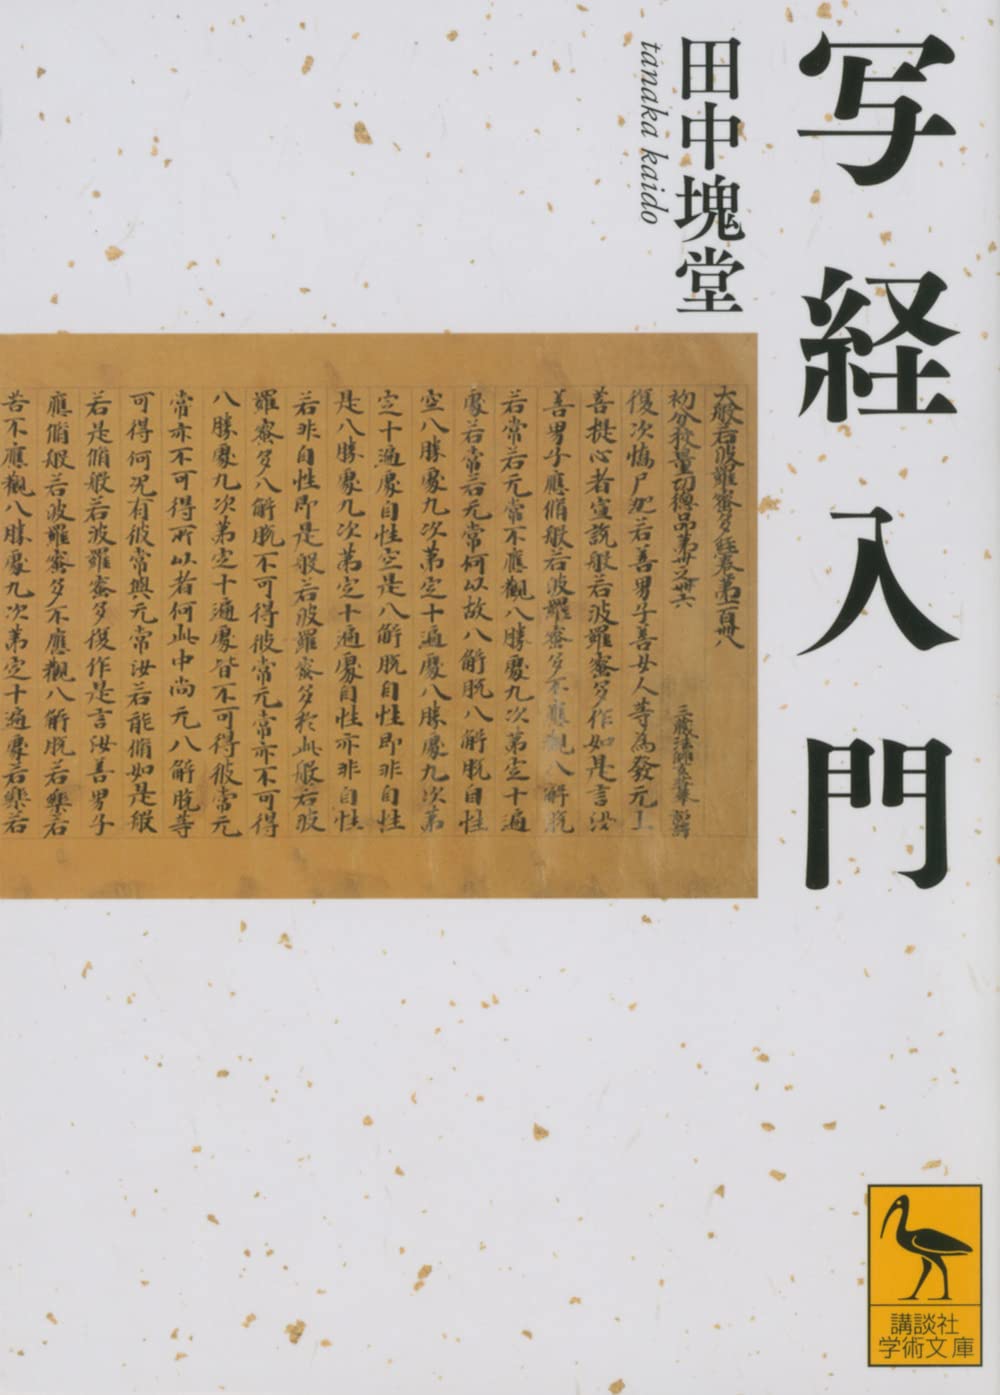 写経入門
田中塊堂
tanaka kaido
大般若波羅蜜多経巻第一百卅八
初分挍量功徳品第卅之卅六 三蔵法師玄奘奉 詔譯
復次憍尸迦若善男子善女人等為發无上
菩提心者宣説般若波羅蜜多作如是言汝
善男子應脩般若波羅蜜多不應觀八解脱
若常若无常不應觀八勝處九次第定十遍
處若常若无常何以故八解脱八解脱自性
空八勝處九次第定十遍處八勝處九次第
定十遍處自性空是八解脱自性即非自性
是八勝處九次第定十遍處自性亦非自性
若非自性即是般若波羅蜜多於此般若波
羅蜜多八解脱不可得彼常无常亦不可得
八勝處九次第定十遍處皆不可得彼常无
常亦不可得所以者何此中尚无八解脱等
可得何況有彼常與无常汝若能脩如是般
若是脩般若波羅蜜多復作是言汝善男子
應脩般若波羅蜜多不應觀八解脱若樂若
苦不應觀八勝處九次第定十遍處若樂若
講談社
学術文庫